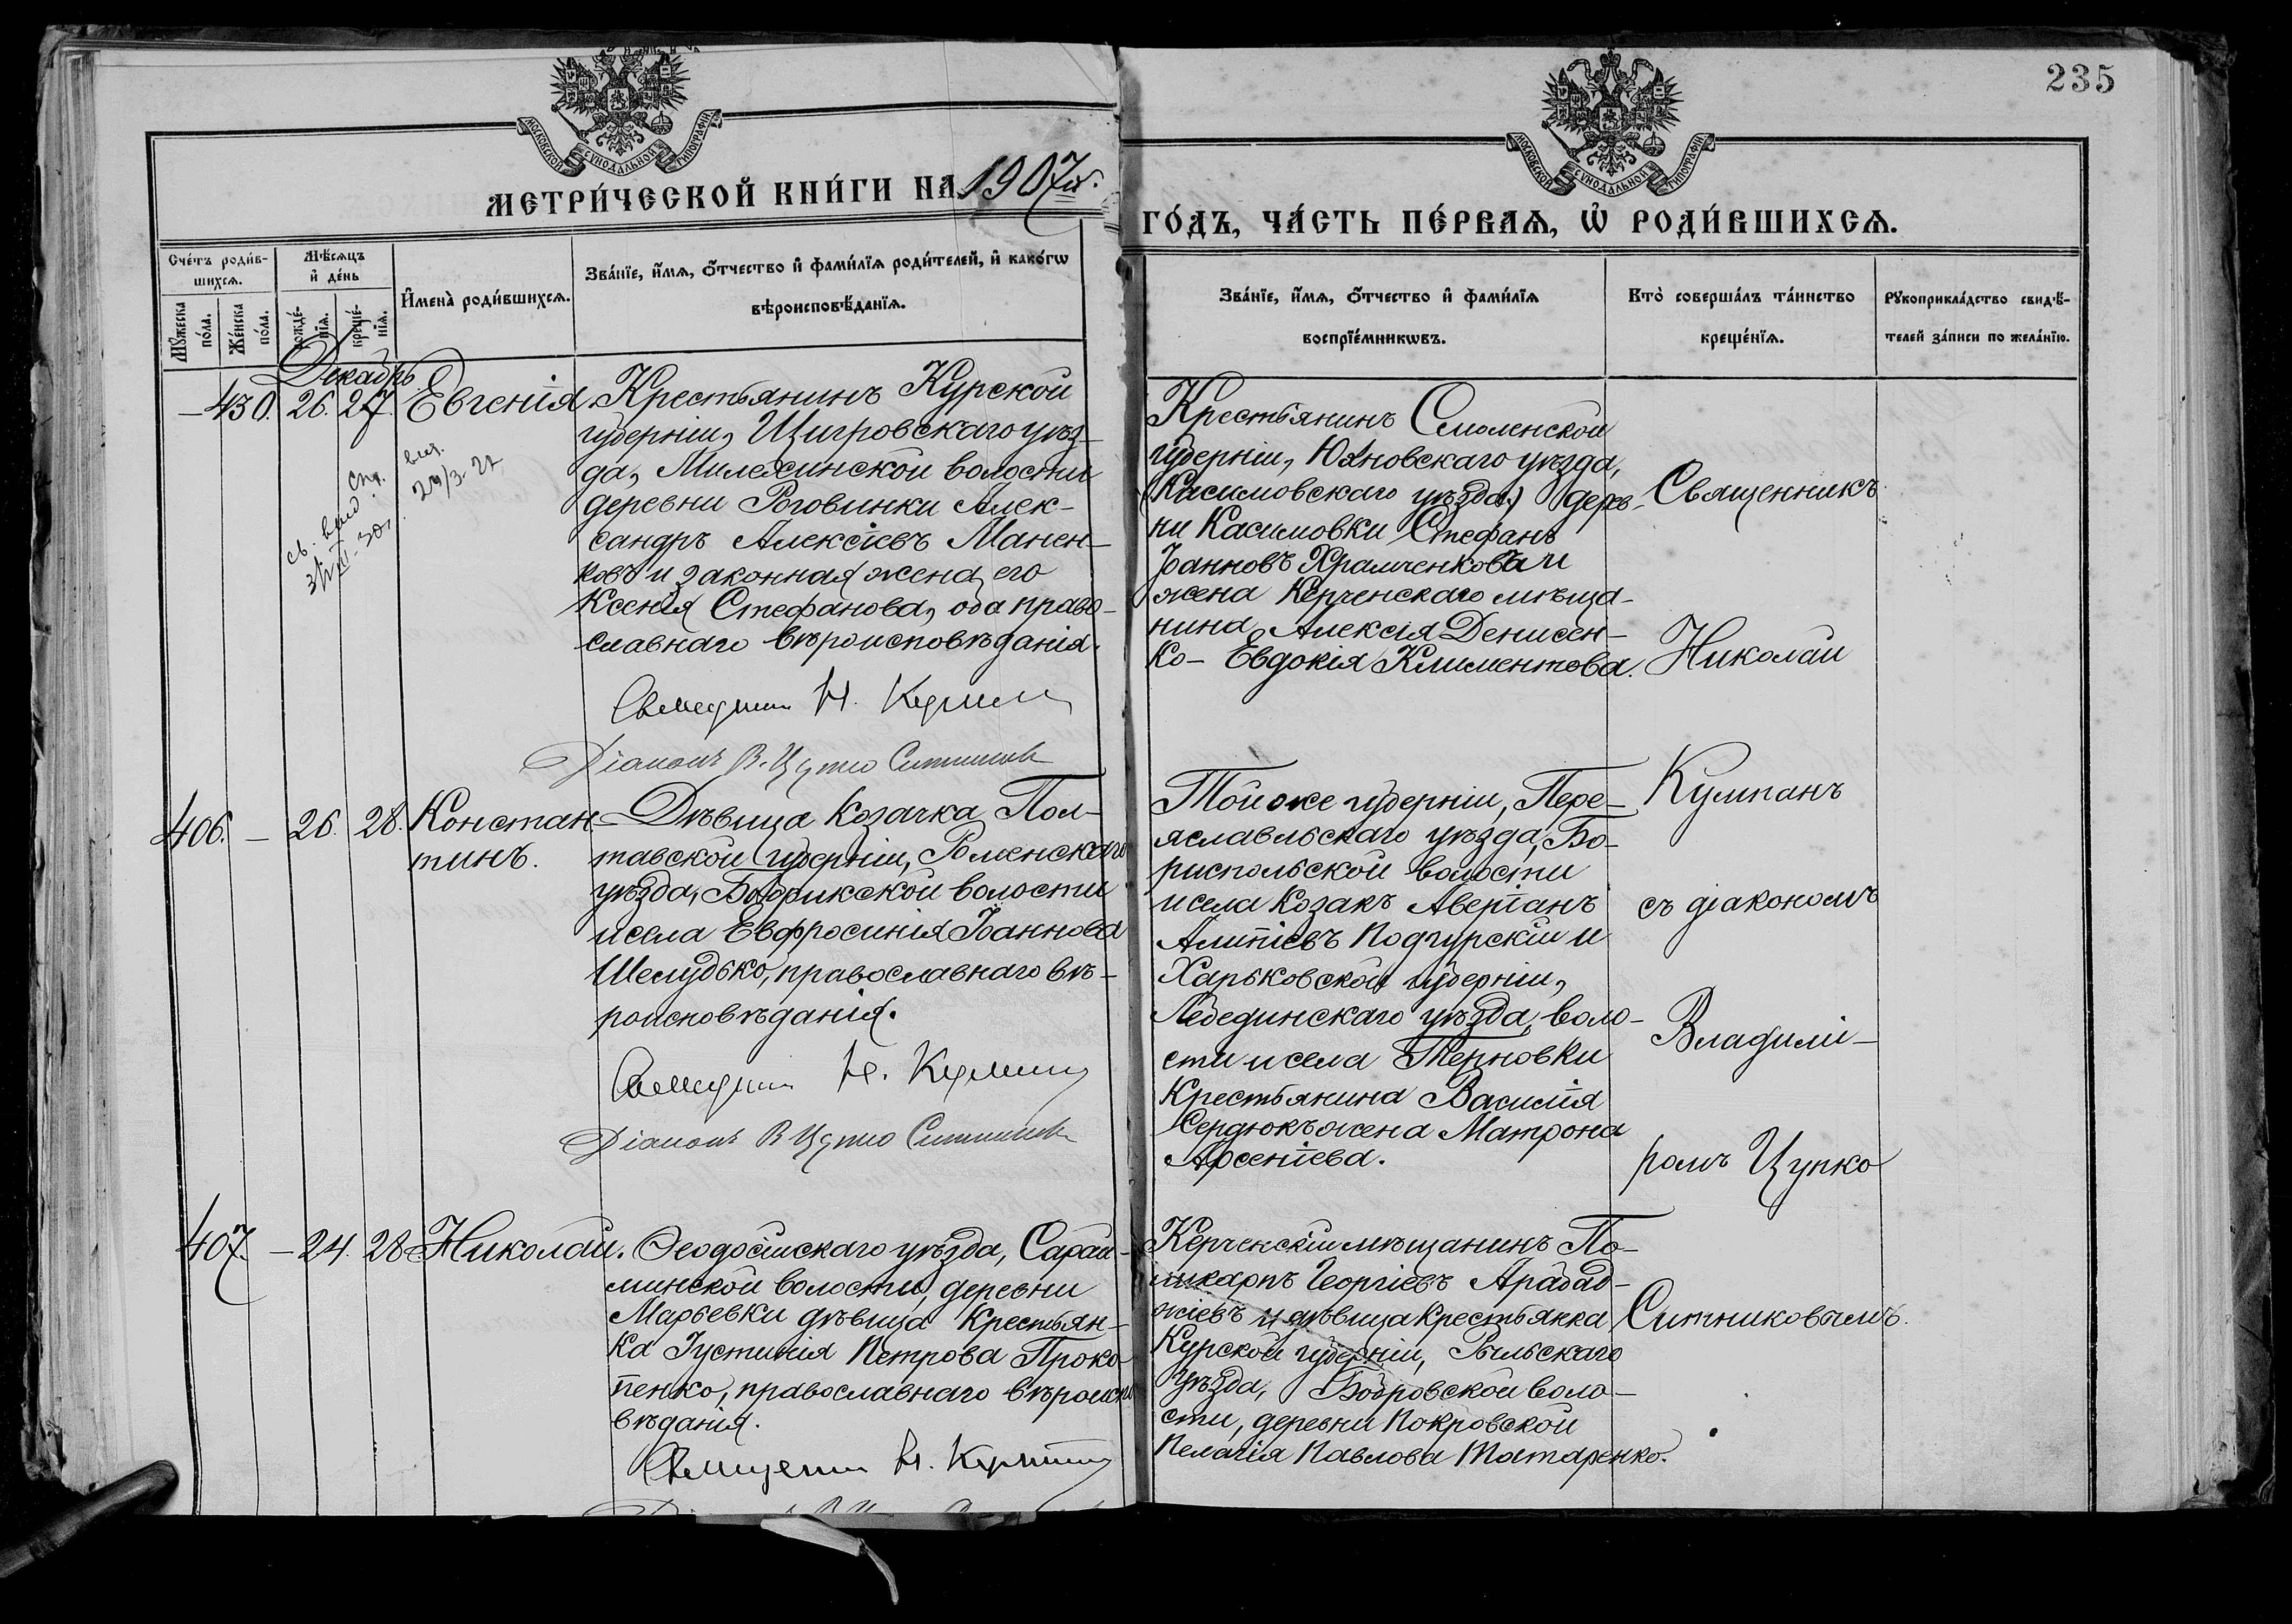 235
МОСКОВСКОЙ СѴНОДАЛЬНОЙ ТИПОГРАФІИ
МОСКОВСКОЙ СѴНОДАЛЬНОЙ ТИПОГРАФІИ
МЕТРИ́ЧЕСКОЙ КНИ́ГИ НА 1907 г.
ГО́ДЪ, ЧА́СТЬ ПЕ́РВАѦ, Ѡ҆ РОДИ́ВШИХСѦ.
Сче́тъ роди́в-
шихсѧ.
Мꙋ́жеска по́ла.
Же́нска по́ла.
Мѣ́сѧцъ
и҆ де́нь
рожде́-
нїѧ.
креще́-
нїѧ.
И҆мена̀ роди́вшихсѧ.
Зва́нїе, и҆́мѧ, ѻ҆́тчество и҆ фами́лїѧ роди́телей, и҆ како́гѡ
вѣроисповѣ́данїѧ.
Зва́нїе, и҆́мѧ, ѻ҆́тчество и҆ фами́лїѧ
воспрїе́мникѡвъ.
Кто̀ соверша́лъ та́инство
креще́нїѧ.
Рꙋкоприкла́дство свидѣ́-
телей за́писи по жела́нїю.
Декабрь
— 430. 26. 27. Евгенія
Крестьянинъ Курской
губерніи, Щигровскаго уѣз-
да, Милехинской волости
деревни Роговинки Алек-
сандръ Алексіевъ Манен-
ковъ и законная жена его
Ксенія Стефанова, оба право-
славнаго вѣроисповѣданія.
Священникъ Н. Кулпанъ
Діаконъ В. Цупко Ситниковъ
Крестьянинъ Смоленской
губерніи, Юхновскаго уѣзда,
(Касимовскаго уѣзда) дерев-
ни Касимовки Стефанъ
Іоанновъ Храмченковъ и
жена Керченскаго мѣща-
нина Алексія Денисен-
ко - Евдокія Климентова.
Священникъ
Николай
Кулпанъ
съ діакономъ
Владимі-
ромъ Цупко
Ситниковымъ.
406. — 26. 28. Констан-
тинъ.
Дѣвица Козачка Пол-
тавской губерніи, Роменскаго
уѣзда, Бобрикской волости
и села Евфросинія Іоаннова
Шелудько, православнаго вѣ-
роисповѣданія.
Священникъ Н. Кулпанъ
Діаконъ В. Цупко Ситниковъ
Той же губерніи, Пере-
яславльскаго уѣзда, Бо-
риспольской волости
и села Козакъ Аверіанъ
Алипіевъ Подгурскій и
Харьковской губерніи,
Лебединскаго уѣзда, воло-
сти и села Терновки
крестьянина Василія
Сердюкъ жена Матрона
Арсеніева.
407. — 24. 28. Николай.
Ѳеодосійскаго уѣзда, Сарай-
минской волости, деревни
Марьевки дѣвица крестьян-
ка Іустинія Петрова Проко-
пенко, православнаго вѣроиспо-
вѣданія.
Священникъ Н. Кулпанъ
Керченскій мѣщанинъ По-
ликарпъ Георгіевъ Арабад-
жіевъ и дѣвица крестьянка
Курской губерніи, Рыльскаго
уѣзда, Бобровской воло-
сти, деревни Покровской
Пелагія Павлова Татаренко.